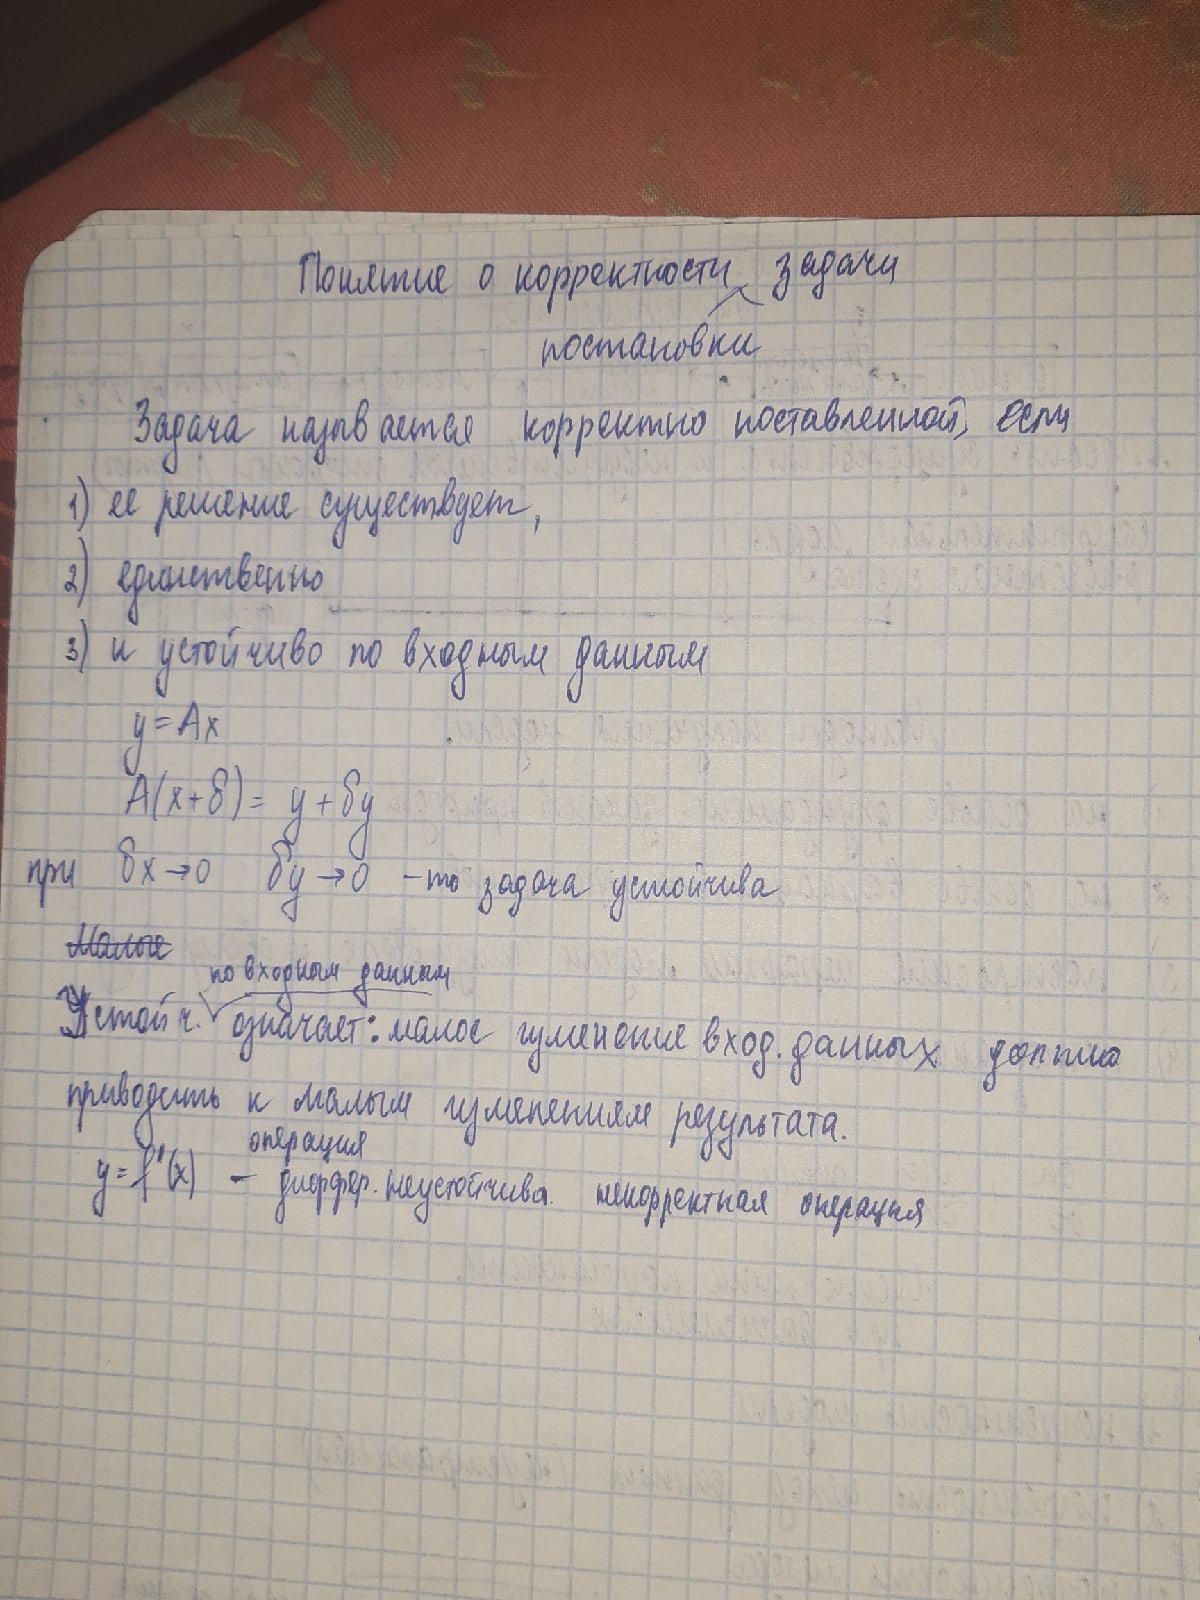 Понятие о корректности задачи
постановки
Задача называется корректно поставленной, если
1) ее решение существует,
2) единственно
3) и устойчиво по входным данным
y = Ax
A(x+δ) = y + δy
при δx → 0 δy → 0 – то задача устойчива
Малые
по входным данным
Устойч. означает: малое изменение вход. данных должно
приводить к малым изменениям результата.
операция
y = f'(x) – диффер. неустойчива. некорректная операция